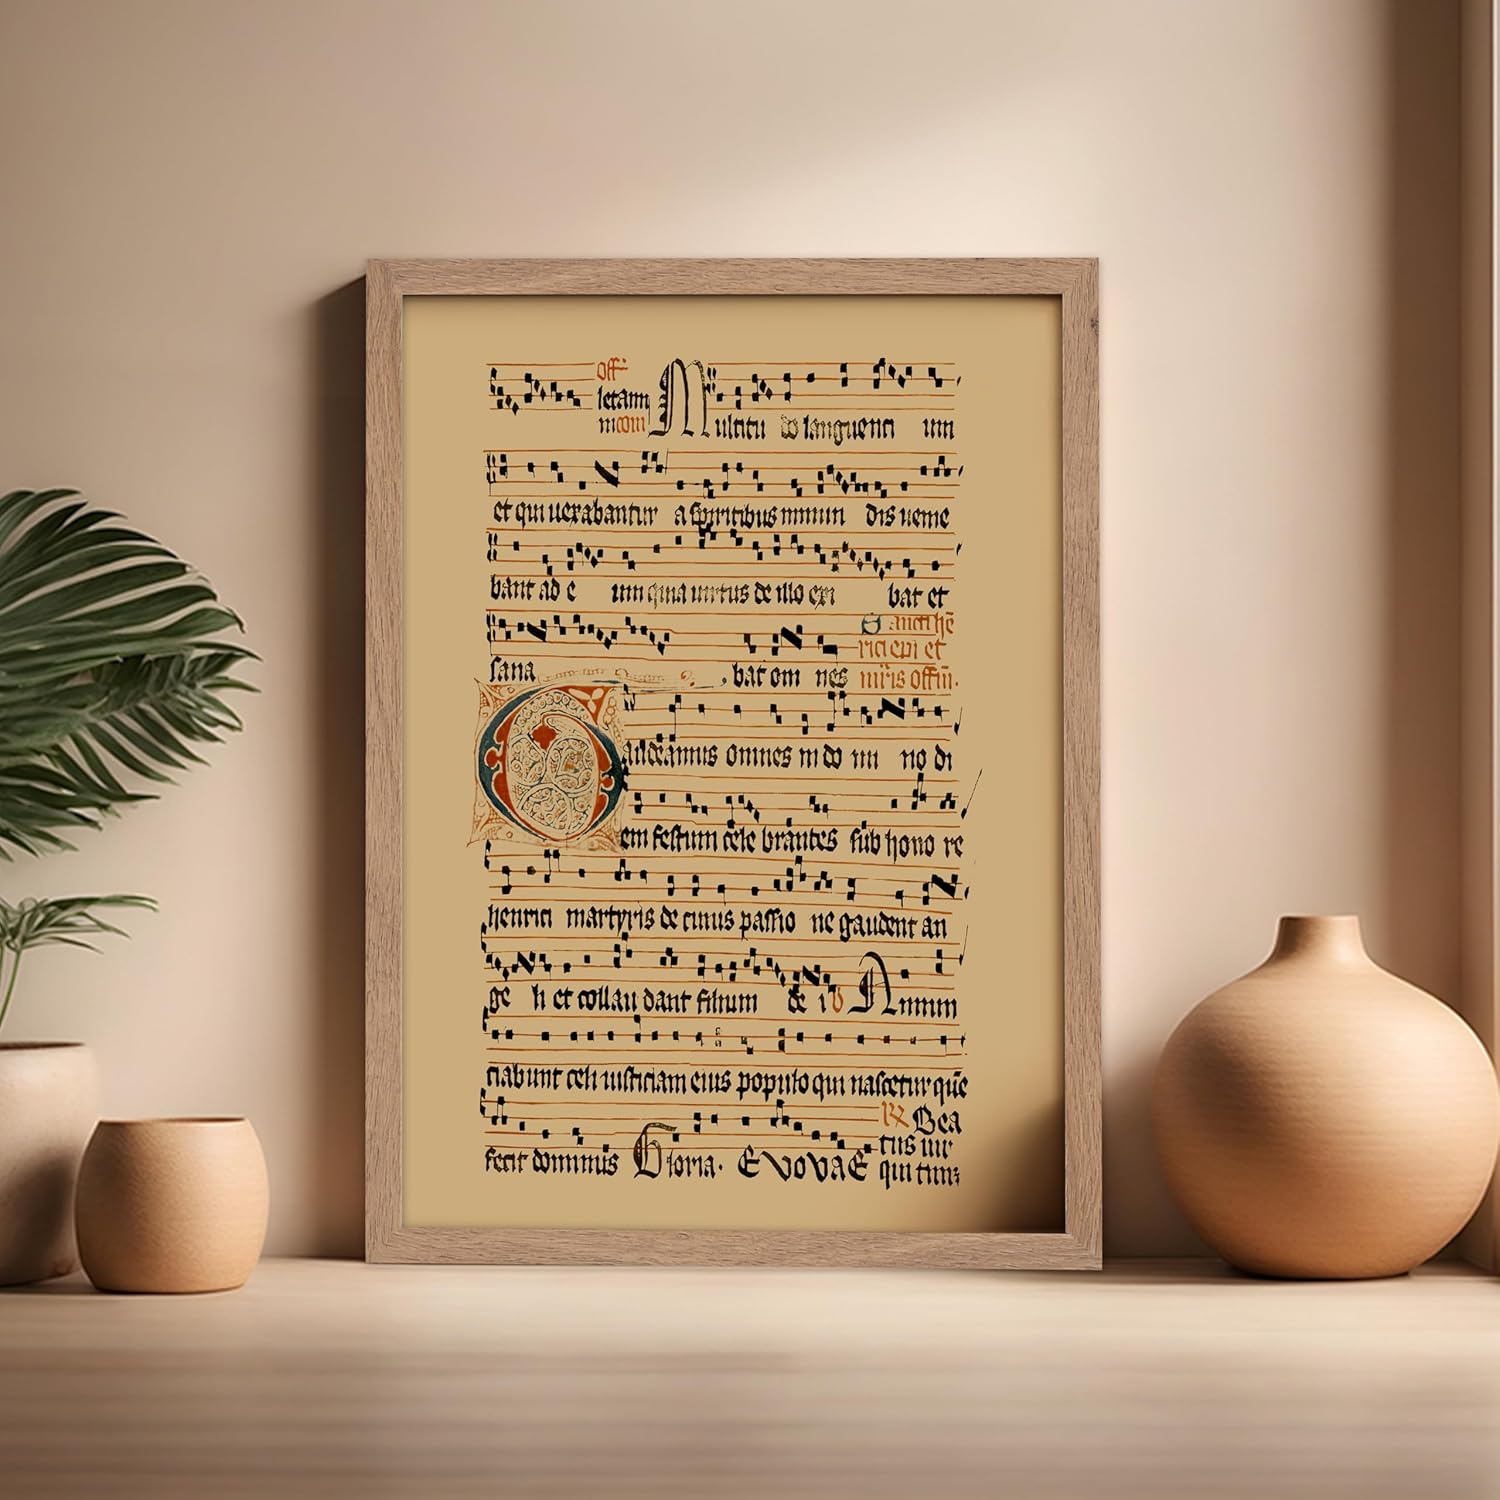 off
letamı
ni com
Multitu do languenti um
et qui uexabantur a spiritibus inmun dis uenie
bant ad e um quia uirtus de illo exi bat et
Sancti hē
rici epi et
sana bat om nes mr̄is offm̄.
Gaudeamus omnes in do mi no di
em festum cele brantes sub hono re
henrici martyris de cuius passio ne gaudent an
ge li et collau dant filium de i V Annun
ciabunt celi iusticiam eius populo qui nascetur que
R Bea
tus uir
fecit dominus Gloria. EVOVAE qui tim;